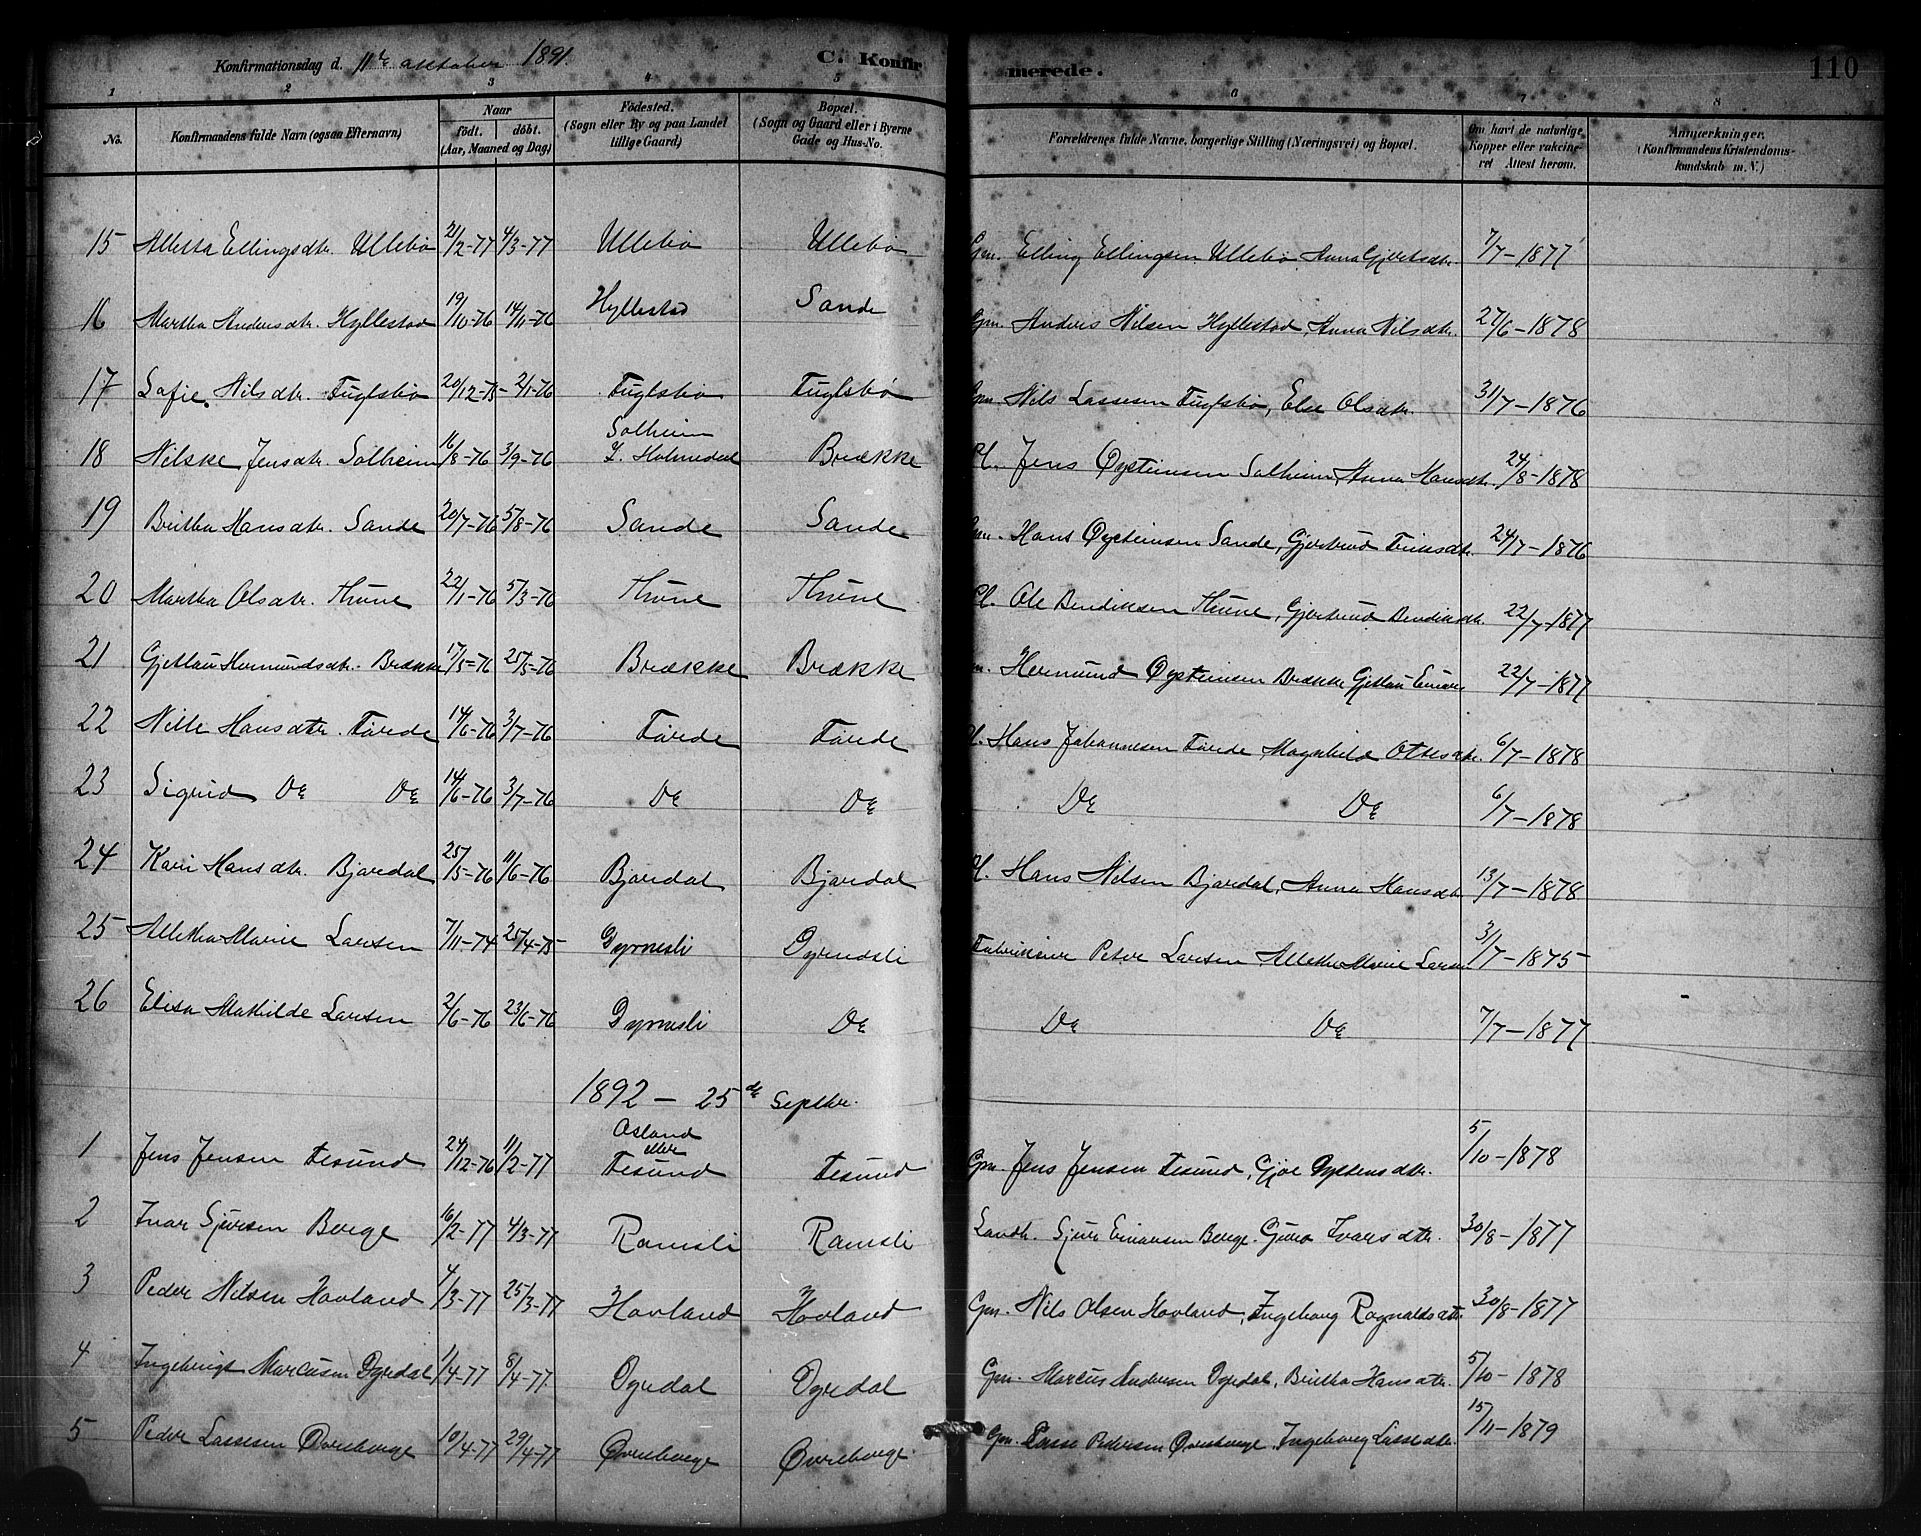 Konfirmationsdag d. 11te oktober 1891. C. Konfirmerede. 110
1 2 3 4 5 6 7 8
No. Konfirmandens fulde Navn (ogsaa Efternavn) Naar födt. döbt. (Aar, Maaned og Dag) Födested. (Sogn eller By og paa Landet tillige Gaard) Bopæl. (Sogn og Gaard eller i Byerne Gade og Hus-No. Forældrenes fulde Navne, borgerlige Stilling (Næringsvei) og Bopæl. Om havt de naturlige Kopper eller vakcineret Attest herom. Anmærkninger. (Konfirmandens Kristendomskundskab m. V.)
15 Alletta Ellingsdtr. Ullebø 21/2-77 4/3-77 Ullebø Ullebø Gm. Elling Ellingsen Ullebø Anna Gjertsdtr. 7/7-1877
16 Martha Andersdtr. Hyllestad 19/10-76 14/11-76 Hyllestad Sande Gm. Anders Nilsen Hyllestad, Anna Nilsdtr. 27/6-1878
17 Sofie Nilsdtr. Fuglebø 20/12-75 2/1-76 Fuglsbø Fuglsbø Gm. Nils Lassesen Fuglsbø, Else Olsdtr. 31/7-1876
18 Nilske Jensdtr. Solheim 16/8-76 3/9-76 Solheim Y. Holmedal Brække Pl. Jens Øysteinsen Solheim, Anna Hansdtr. 24/8-1878
19 Britha Hansdtr. Sande 20/7-76 5/8-76 Sande Sande Gm. Hans Øysteinsen Sande, Gjertrud 24/7-1876
20 Martha Olsdtr. Thune 22/1-76 5/3-76 Thune Thune Pl. Ole Bendiksen Thune, Gjertrud Bendiksdtr. 22/7-1877
21 Gjetlau Hermundsdtr. Brække 17/5-76 25/5-76 Brække Brække Hermund Øysteinsen Brække Gjetlau 22/7-1877
22 Nille Hansdtr. Førde 14/6-76 3/7-76 Førde Førde Pl. Hans Johannesen Førde Magnhild Ottesdtr. 6/7-1878
23 Sigrid Do Do 14/6-76 3/7-76 Do Do Do Do 6/7-1878
24 Kari Hansdtr. Bjørdal 25/5-76 11/6-76 Bjørdal Bjørdal Pl. Hans Nilsen Bjørdal, Anna Hansdtr. 13/7-1878
25 Alletha Marie Larsen 7/11-74 25/4-75 Dyrnesli Dyrnesli Fabrikeier Peter Larsen, Alletha Marie Larsen 31/7-1875
26 Elisa Mathilde Larsen 2/6-76 23/6-76 Dyrnesli Do Do Do 7/7-1877
1892 — 25de Septbr.
1 Jens Jensen Tesund 24/12-76 11/2-77 Osland eller Tesund Tesund Gm. Jens Jensen Tesund, Gjøe Øystensdtr. 5/10-1878
2 Ivar Sjursen Berge 16/2-77 4/3-77 Ramsli Ramsli Landh. Sjur Einarsen Berge. Guro Ivarsdtr. 30/8-1877
3 Peder Nilsen Hovland 4/3-77 25/3-77 Hovland Hovland Gm. Nils Olsen Hovland, Ingeborg Ragnaldsdtr. 30/8-1877
4 Ingebrigt Marcusen Dyrdal 1/4-77 8/4-77 Dyrdal Dyrdal Gm. Marcus Andersen Dyrdal, Britha Hansdtr. 5/10-1878
5 Peder Lassesen Øvreberge 10/4-77 29/4-77 Øvreberge Øvreberge Gm. Lasse Pedersen Øvreberge, Ingeborg Lassedtr. 15/11-1879